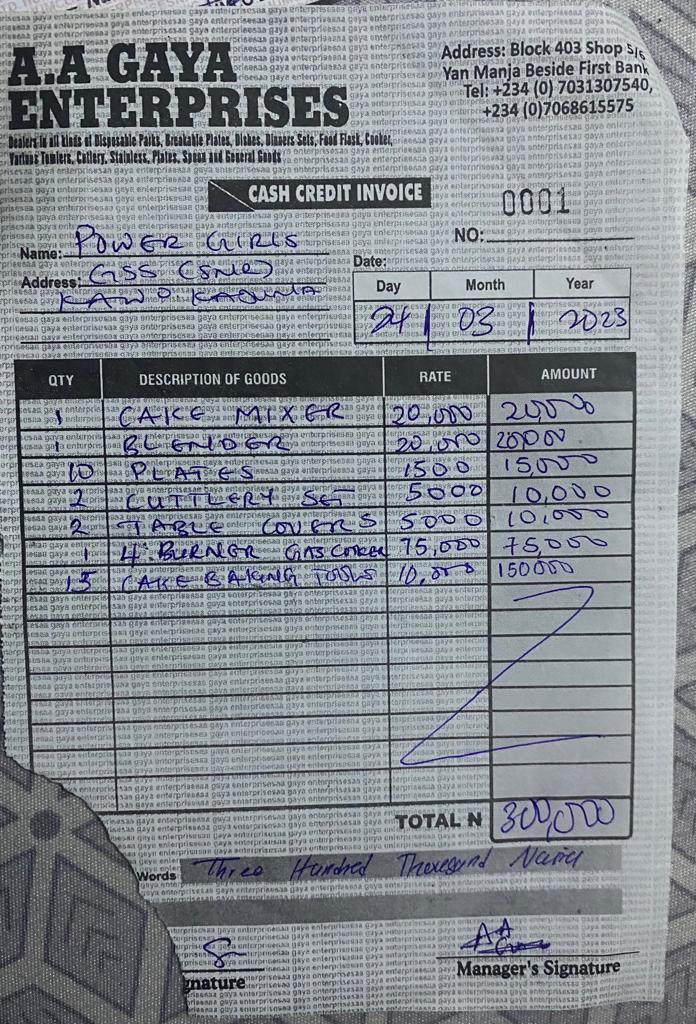 A.A GAYA
ENTERPRISES
Dealers in all kinds of Disposable Packs, Breakable Plates, Dishes, Dinners Sets, Food Flask, Cooker,
Various Tumlers, Cutlery, Stainless, Plates, Spoon and General Goods
Address: Block 403 Shop 5/6
Yan Manja Beside First Bank
Tel: +234 (0) 7031307540,
+234 (0)7068615575
CASH CREDIT INVOICE
0001
NO:
Name: POWER GIRLS
Address: GSS (SNR)
KAWO KADUNA
Date:
Day Month Year
24 03 2023
QTY DESCRIPTION OF GOODS RATE AMOUNT
1 CAKE MIXER 20,000 20,000
1 BLENDER 20,000 20000
10 PLATES 1500 15,000
2 CUTTLERY SET 5000 10,000
2 TABLE COVERS 5000 10,000
1 4 BURNER GAS COOKER 75,000 75,000
15 CAKE BAKING TOOLS 10,000 150000
TOTAL N 300,000
Words Three Hundred Thousand Naira
AA
gnature
Manager's Signature